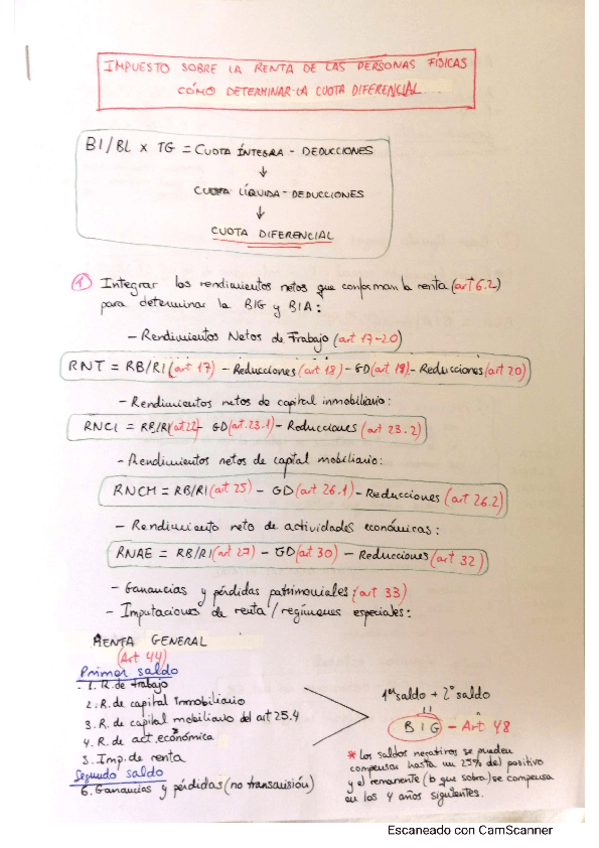 IMPUESTO SOBRE LA RENTA DE LAS PERSONAS FÍSICAS
CÓMO DETERMINAR LA CUOTA DIFERENCIAL
BI/BL x TG = CUOTA ÍNTEGRA - DEDUCCIONES
↓
CUOTA LÍQUIDA - DEDUCCIONES
↓
CUOTA DIFERENCIAL
1 Integrar los rendimientos netos que conforman la renta (art 6.2)
para determinar la BIG y BIA:
- Rendimientos Netos de Trabajo (art 17-20)
RNT = RB/RI (art 17) - Reducciones (art 18) - GD (art 19) - Reducciones (art 20)
- Rendimientos netos de capital inmobiliario:
RNCI = RB/RI (art 22) - GD (art. 23.1) - Reducciones (art 23.2)
- Rendimientos netos de captal mobiliario:
RNCM = RB/RI (art 25) - GD (art 26.1) - Reducciones (art 26.2)
- Rendimiento neto de actividades económicas:
RNAE = RB/RI (art 27) - GD (art 30) - Reducciones (art 32)
- Ganancias y pérdidas patrimoniales: (art 33)
- Imputaciones de renta / regímenes especiales:
RENTA GENERAL
(Art 44)
Primer saldo
1. R. de trabajo
2. R. de capital Inmobiliario
3. R. de capital mobiliario del art 25.4
4. R. de act. económica
5. Imp. de renta
Segundo saldo
6. Ganancias y pérdidas (no transmisión)
1er saldo + 2º saldo
=
BIG - Art 48
* Los saldos negativos se pueden
compensar hasta un 25% del positivo
y el remanente (lo que sobra) se compensa
en los 4 años siguientes.
Escaneado con CamScanner